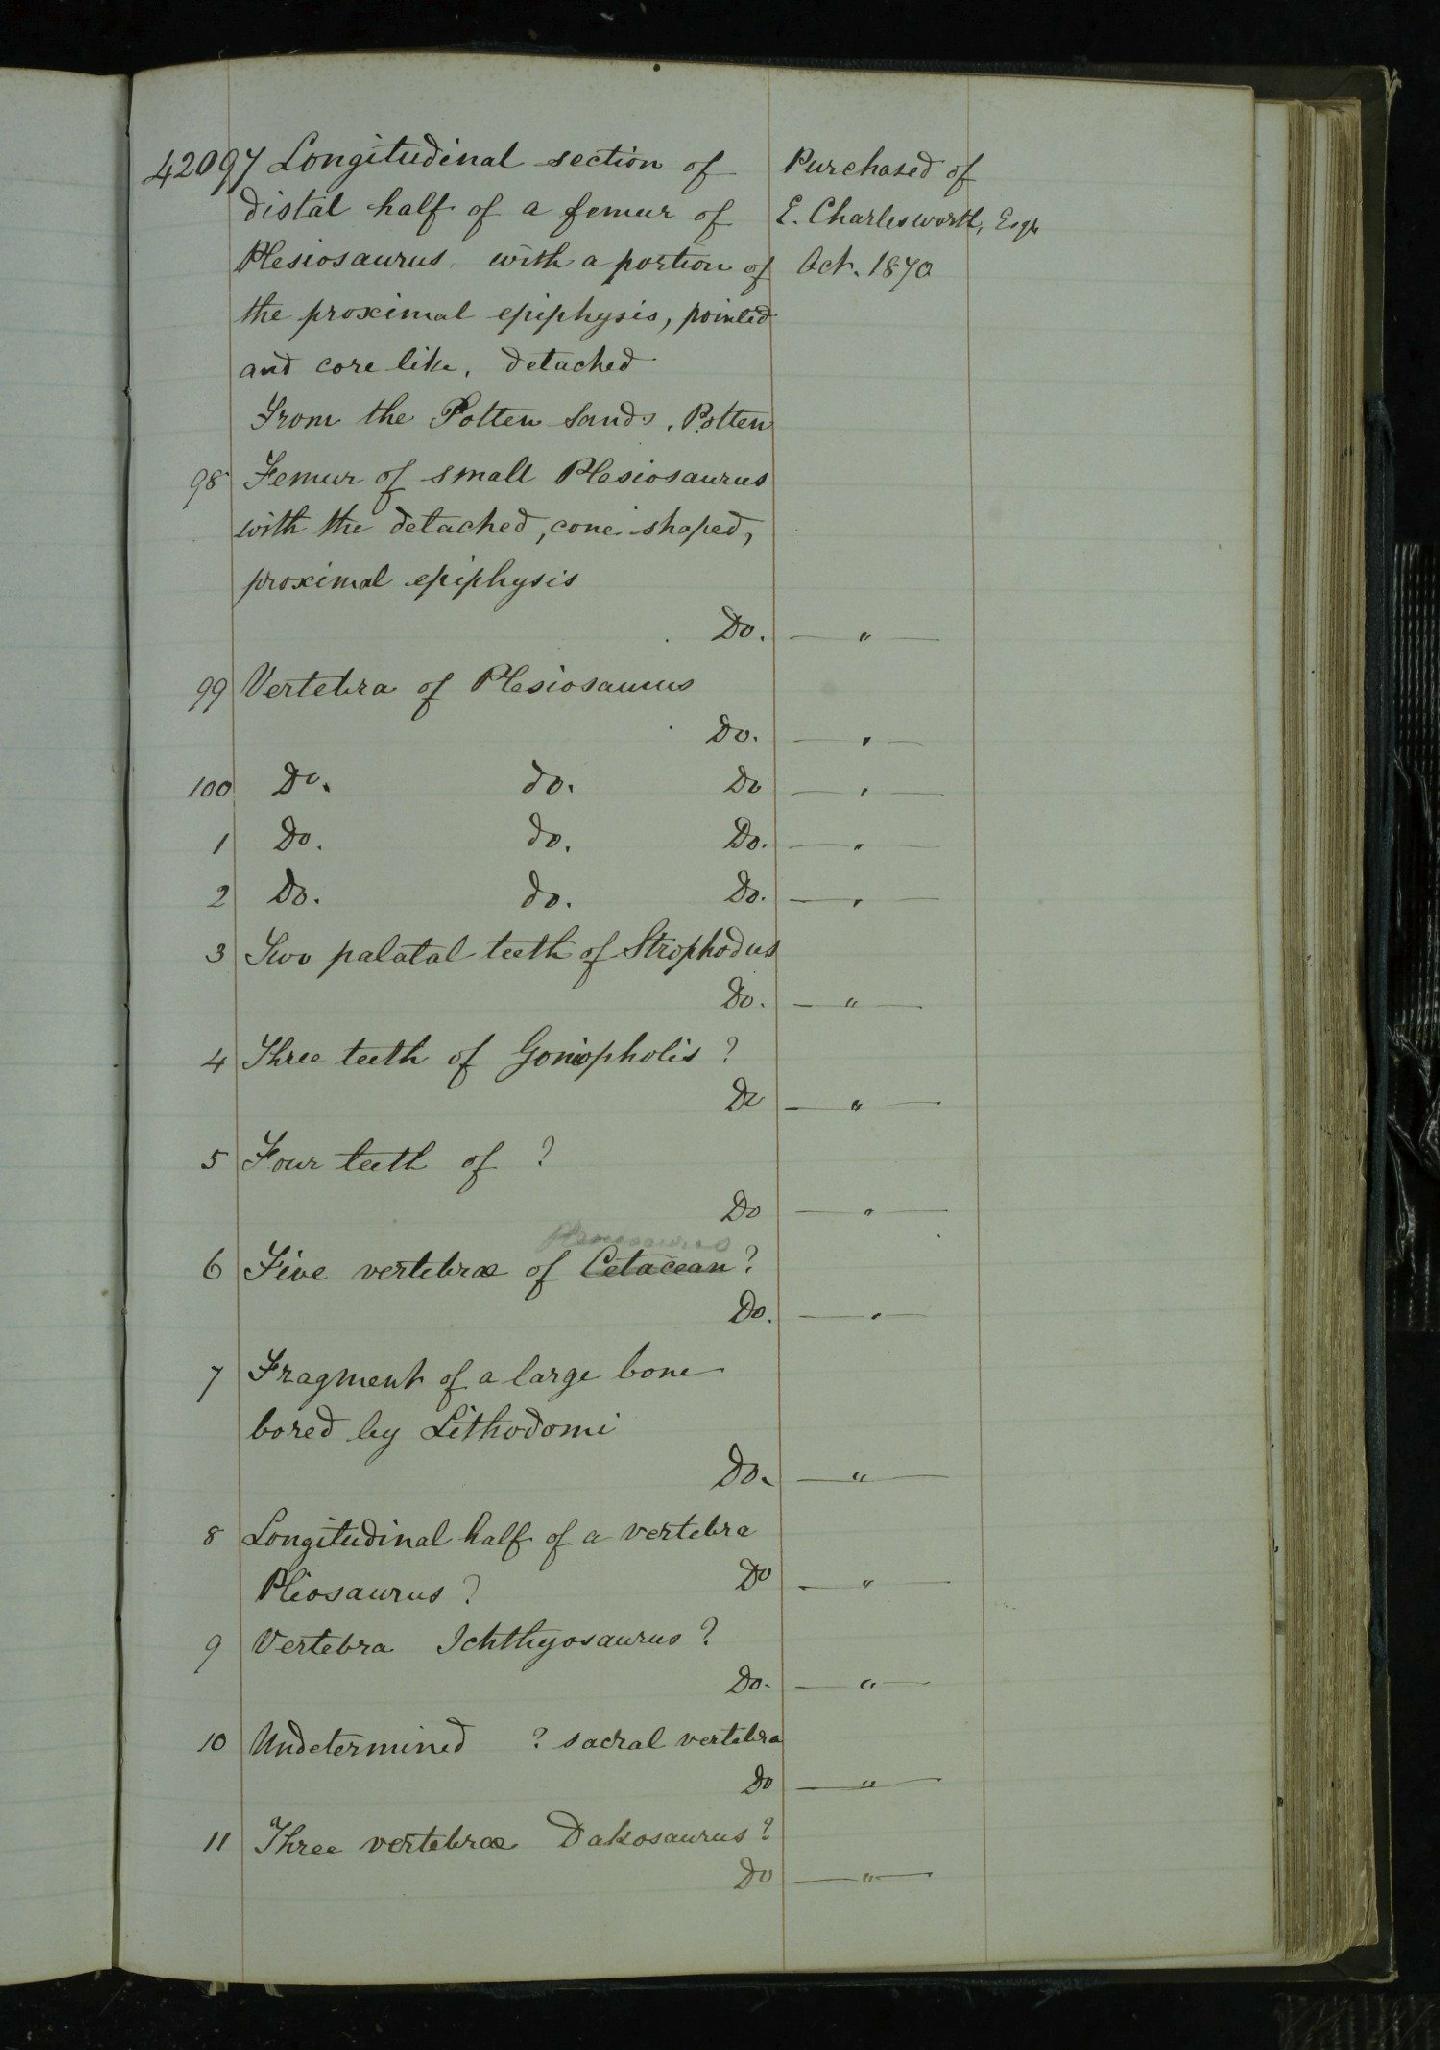 42097 Longitudinal section of Purchased of
distal half of a femur of E. Charlesworth, Esqr
Plesiosaurus with a portion of Oct. 1870
the proximal epiphysis, pointed
and core like, detached
From the Potten Sands, Potten
98 Femur of small Plesiosaurus
with the detached, cone-shaped,
proximal epiphysis
Do. — " —
99 Vertebra of Plesiosaurus
Do. — " —
100 Do. do. Do — " —
1 Do. do. Do. — " —
2 Do. do. Do. — " —
3 Two palatal teeth of Strophodus
Do. — " —
4 Three teeth of Goniopholis ?
Do — " —
5 Four teeth of ?
Do — " —
6 Five vertebræ of Cetacean ?
Do. — " —
7 Fragment of a large bone
bored by Lithodomi
Do. — " —
8 Longitudinal half of a vertebra
Pliosaurus ? Do — " —
9 Vertebra Ichthyosaurus ?
Do. — " —
10 Undetermined ? sacral vertebra
Do — " —
11 Three vertebræ Dakosaurus ?
Do — " —